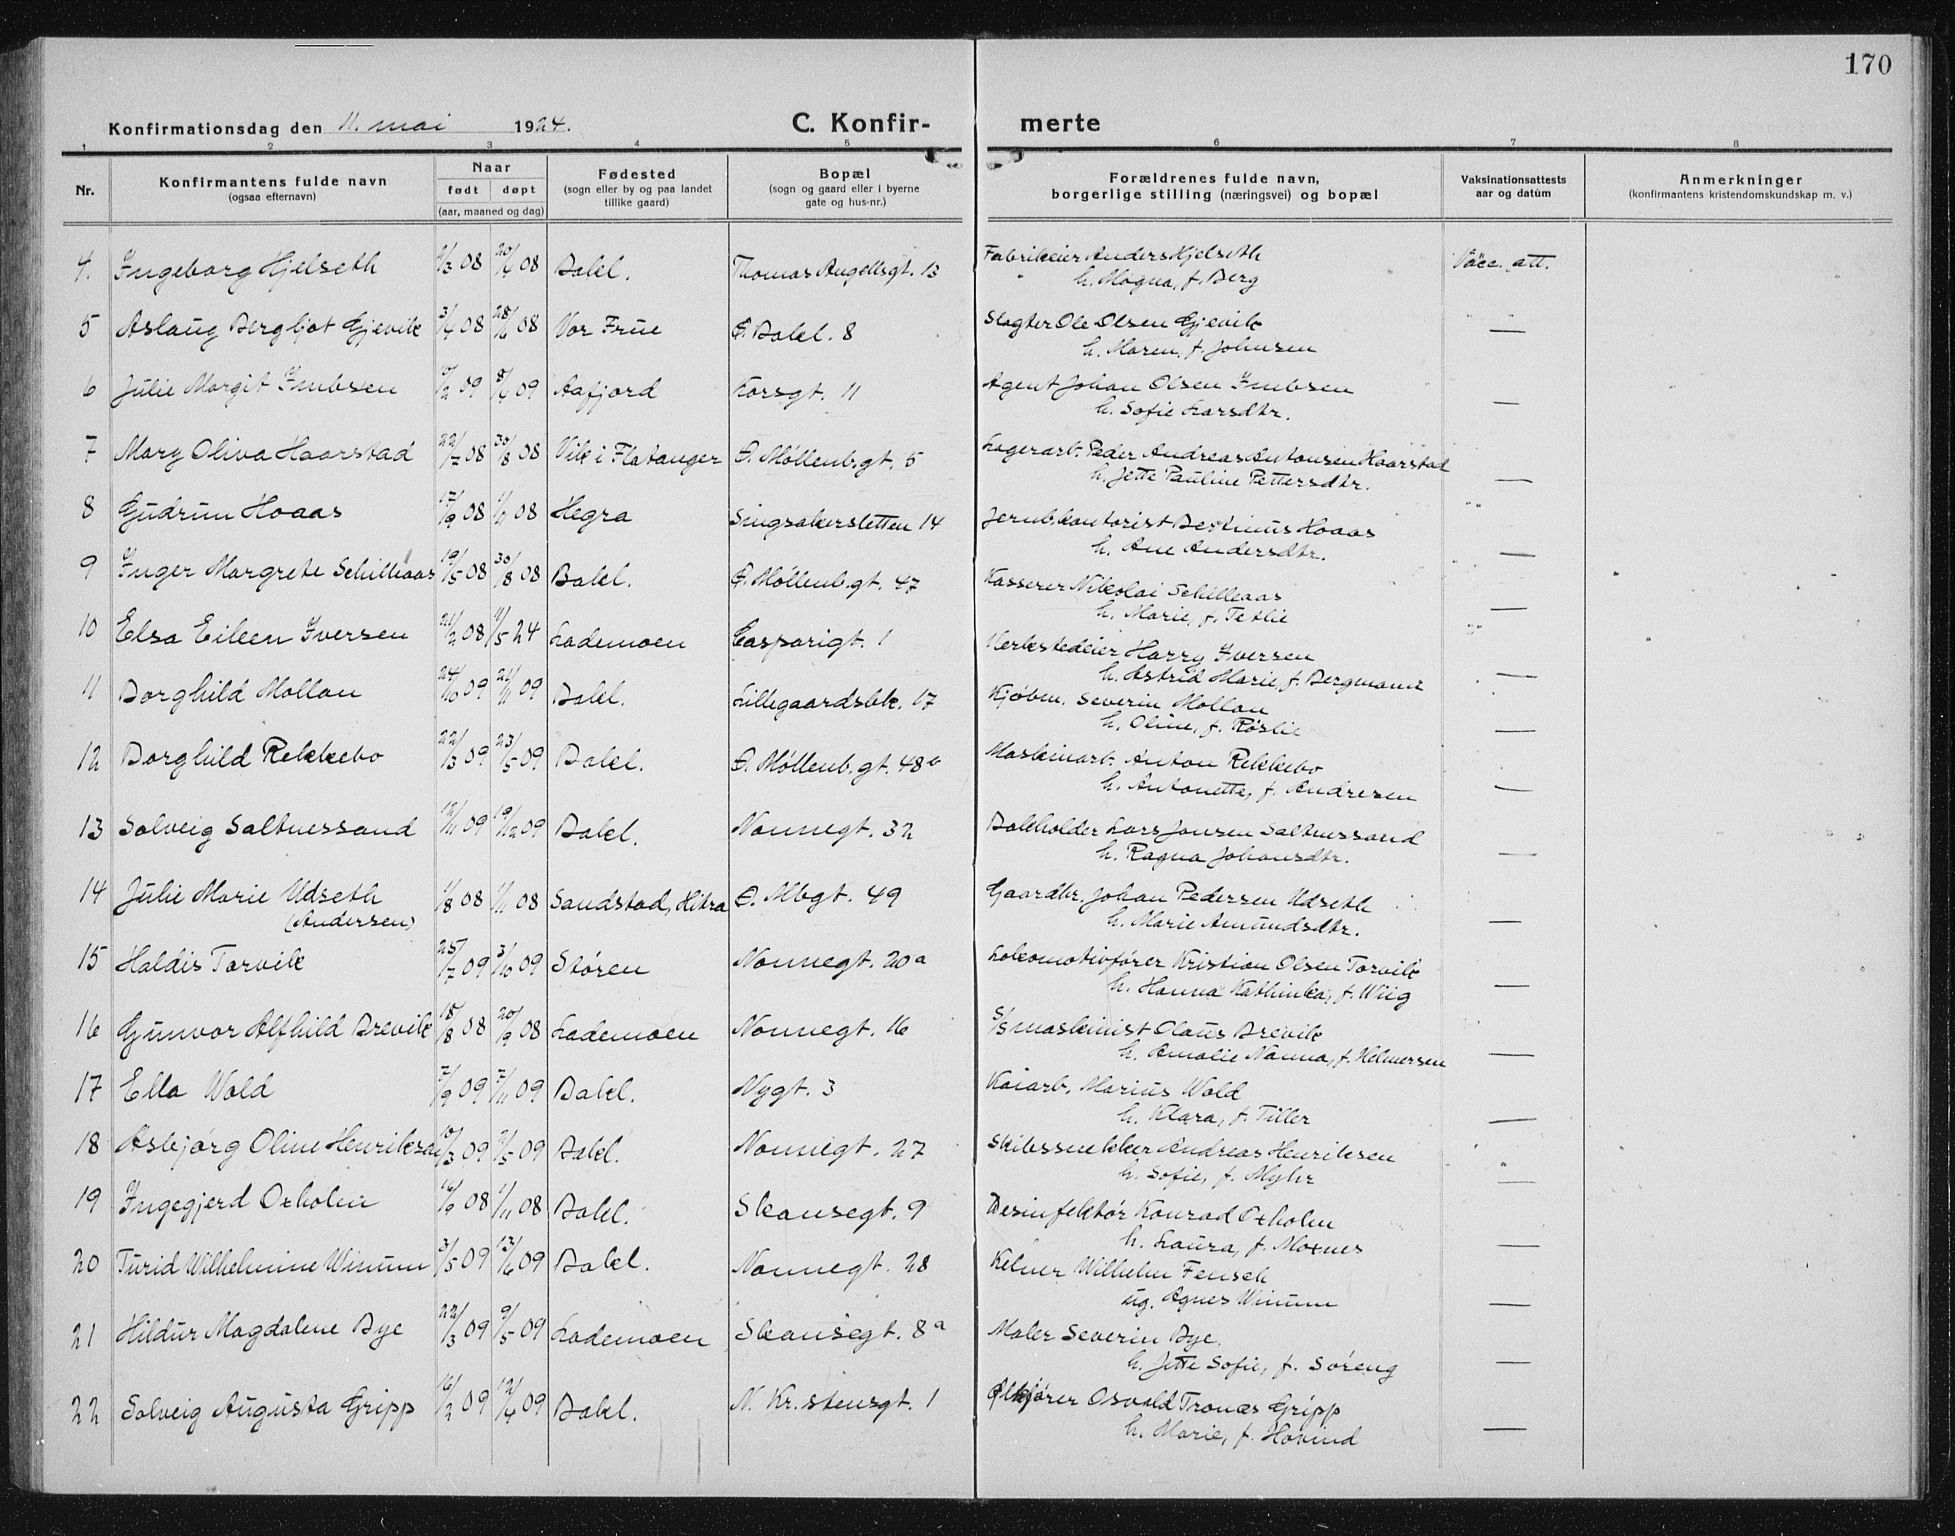 170
Konfirmationsdag den 11. mai 1924.
C. Konfirmerte
1 2 3 4 5 6 7 8
Nr. Konfirmantens fulde navn (ogsaa efternavn) Naar født døpt (aar, maaned og dag) Fødested (sogn eller by og paa landet tillike gaard) Bopæl (sogn og gaard eller i byerne gate og hus-nr.) Forældrenes fulde navn, borgerlige stilling (næringsvei) og bopæl Vaksinationsattests aar og datum Anmerkninger (konfirmantens kristendomskundskap m. v.)
4. Ingeborg Hjelseth 2/3 08 20/4 08 Bakl. Thomas Angellsgt. 13 Fabrikeier Anders Hjelseth Vacc. att.
h. Magna, f. Berg
5 Aslaug Bergljot Gjevik 3/4 08 28/6 08 Vor Frue Ø. Bakl. 8 Slagter Ole Olsen Gjevik —
h. Maren, f. Johnsen
6 Julie Margit Imbsen 09 8/4 09 Aafjord Korsgt. 11 Agent Johan Olsen Imbsen —
h. Sofie Larsdtr.
7 Mary Oliva Haarstad 22/7 08 30/8 08 Vik i Flatanger Ø. Møllenb.gt. 5 Lagerarb. Peder Andreas Antonsen Haarstad —
h. Jette Pauline Pettersdtr.
8 Gudrun Hoaas 17/9 08 08 Hegra Singsakersletten 14 Jernb.kontorist Bestinus Hoaas —
h. Ane Andersdtr.
9 Inger Margrete Schilleaas 19/5 08 30/8 08 Bakl. Ø. Møllenb.gt. 47 Kasserer Nikolai Schilleaas —
h. Marie, f. Tetlie
10 Elsa Eileen Iversen 21/2 08 11/5 24 Lademoen Casparigt. 1 Verkstedeier Harry Iversen —
h. Astrid Marie, f. Bergmann
11 Borghild Mollan 24/10 09 21/11 09 Bakl. Lillegaardsbk. 17 Kjøbm. Severin Mollan —
h. Oline, f. Røslie
12 Borghild Rekkebo 22/3 09 23/5 09 Bakl. Ø. Møllenb.gt. 48b Maskinarb. Anton Rekkebo —
h. Antonette, f. Andresen
13 Solveig Saltnessand 12/11 09 19/12 09 Bakl. Nonnegt. 32 Bokholder Lars Jonsen Saltnessand —
h. Ragna Johansdtr.
14 Julie Marie Udseth 08 1/11 08 Sandstad, Hitra Ø. Mbgt. 49 Gaardbr. Johan Pedersen Udseth —
(Andersen) h. Marie Amundsdtr.
15 Haldis Torvik 25/7 09 3/10 09 Støren Nonnegt. 20a Lokomotivfører Kristian Olsen Torvik —
h. Hanna Kathinka, f. Wiig
16 Gunvor Alfhild Brevik 18/8 08 20/9 08 Lademoen Nonnegt. 16 S/S maskinist Olaus Brevik —
h. Amalie Nanna, f. Helmersen
17 Ella Wold 7/9 09 7/11 09 Bakl. Nygt. 3 Kaiarb. Marius Wold —
h. Klara, f. Tiller
18 Asbjørg Oline Henriksen 10/3 09 2/5 09 Bakl. Nonnegt. 27 Skibssnekker Andreas Henriksen —
h. Sofie, f. Myhr
19 Ingegjerd Oxholm 16/9 08 1/11 08 Bakl. Skansegt. 9 Desinfektør Konrad Oxholm —
h. Laura, f. Moxnes
20 Turid Wilhelmine Winum 3/5 09 13/6 09 Bakl. Nonnegt. 28 Kelner Wilhelm Fensch —
ug. Agnes Winum
21 Hildur Magdalene Bye 22/3 09 9/5 09 Lademoen Skansegt. 8a Maler Severin Bye —
h. Jette Sofie, f. Søreng
22 Solveig Augusta Gripp 16/2 09 12/4 09 Bakl. N. Kr.stensgt. 1 Ølkjører Osvald Tronæs Gripp —
h. Marie, f. Hovind